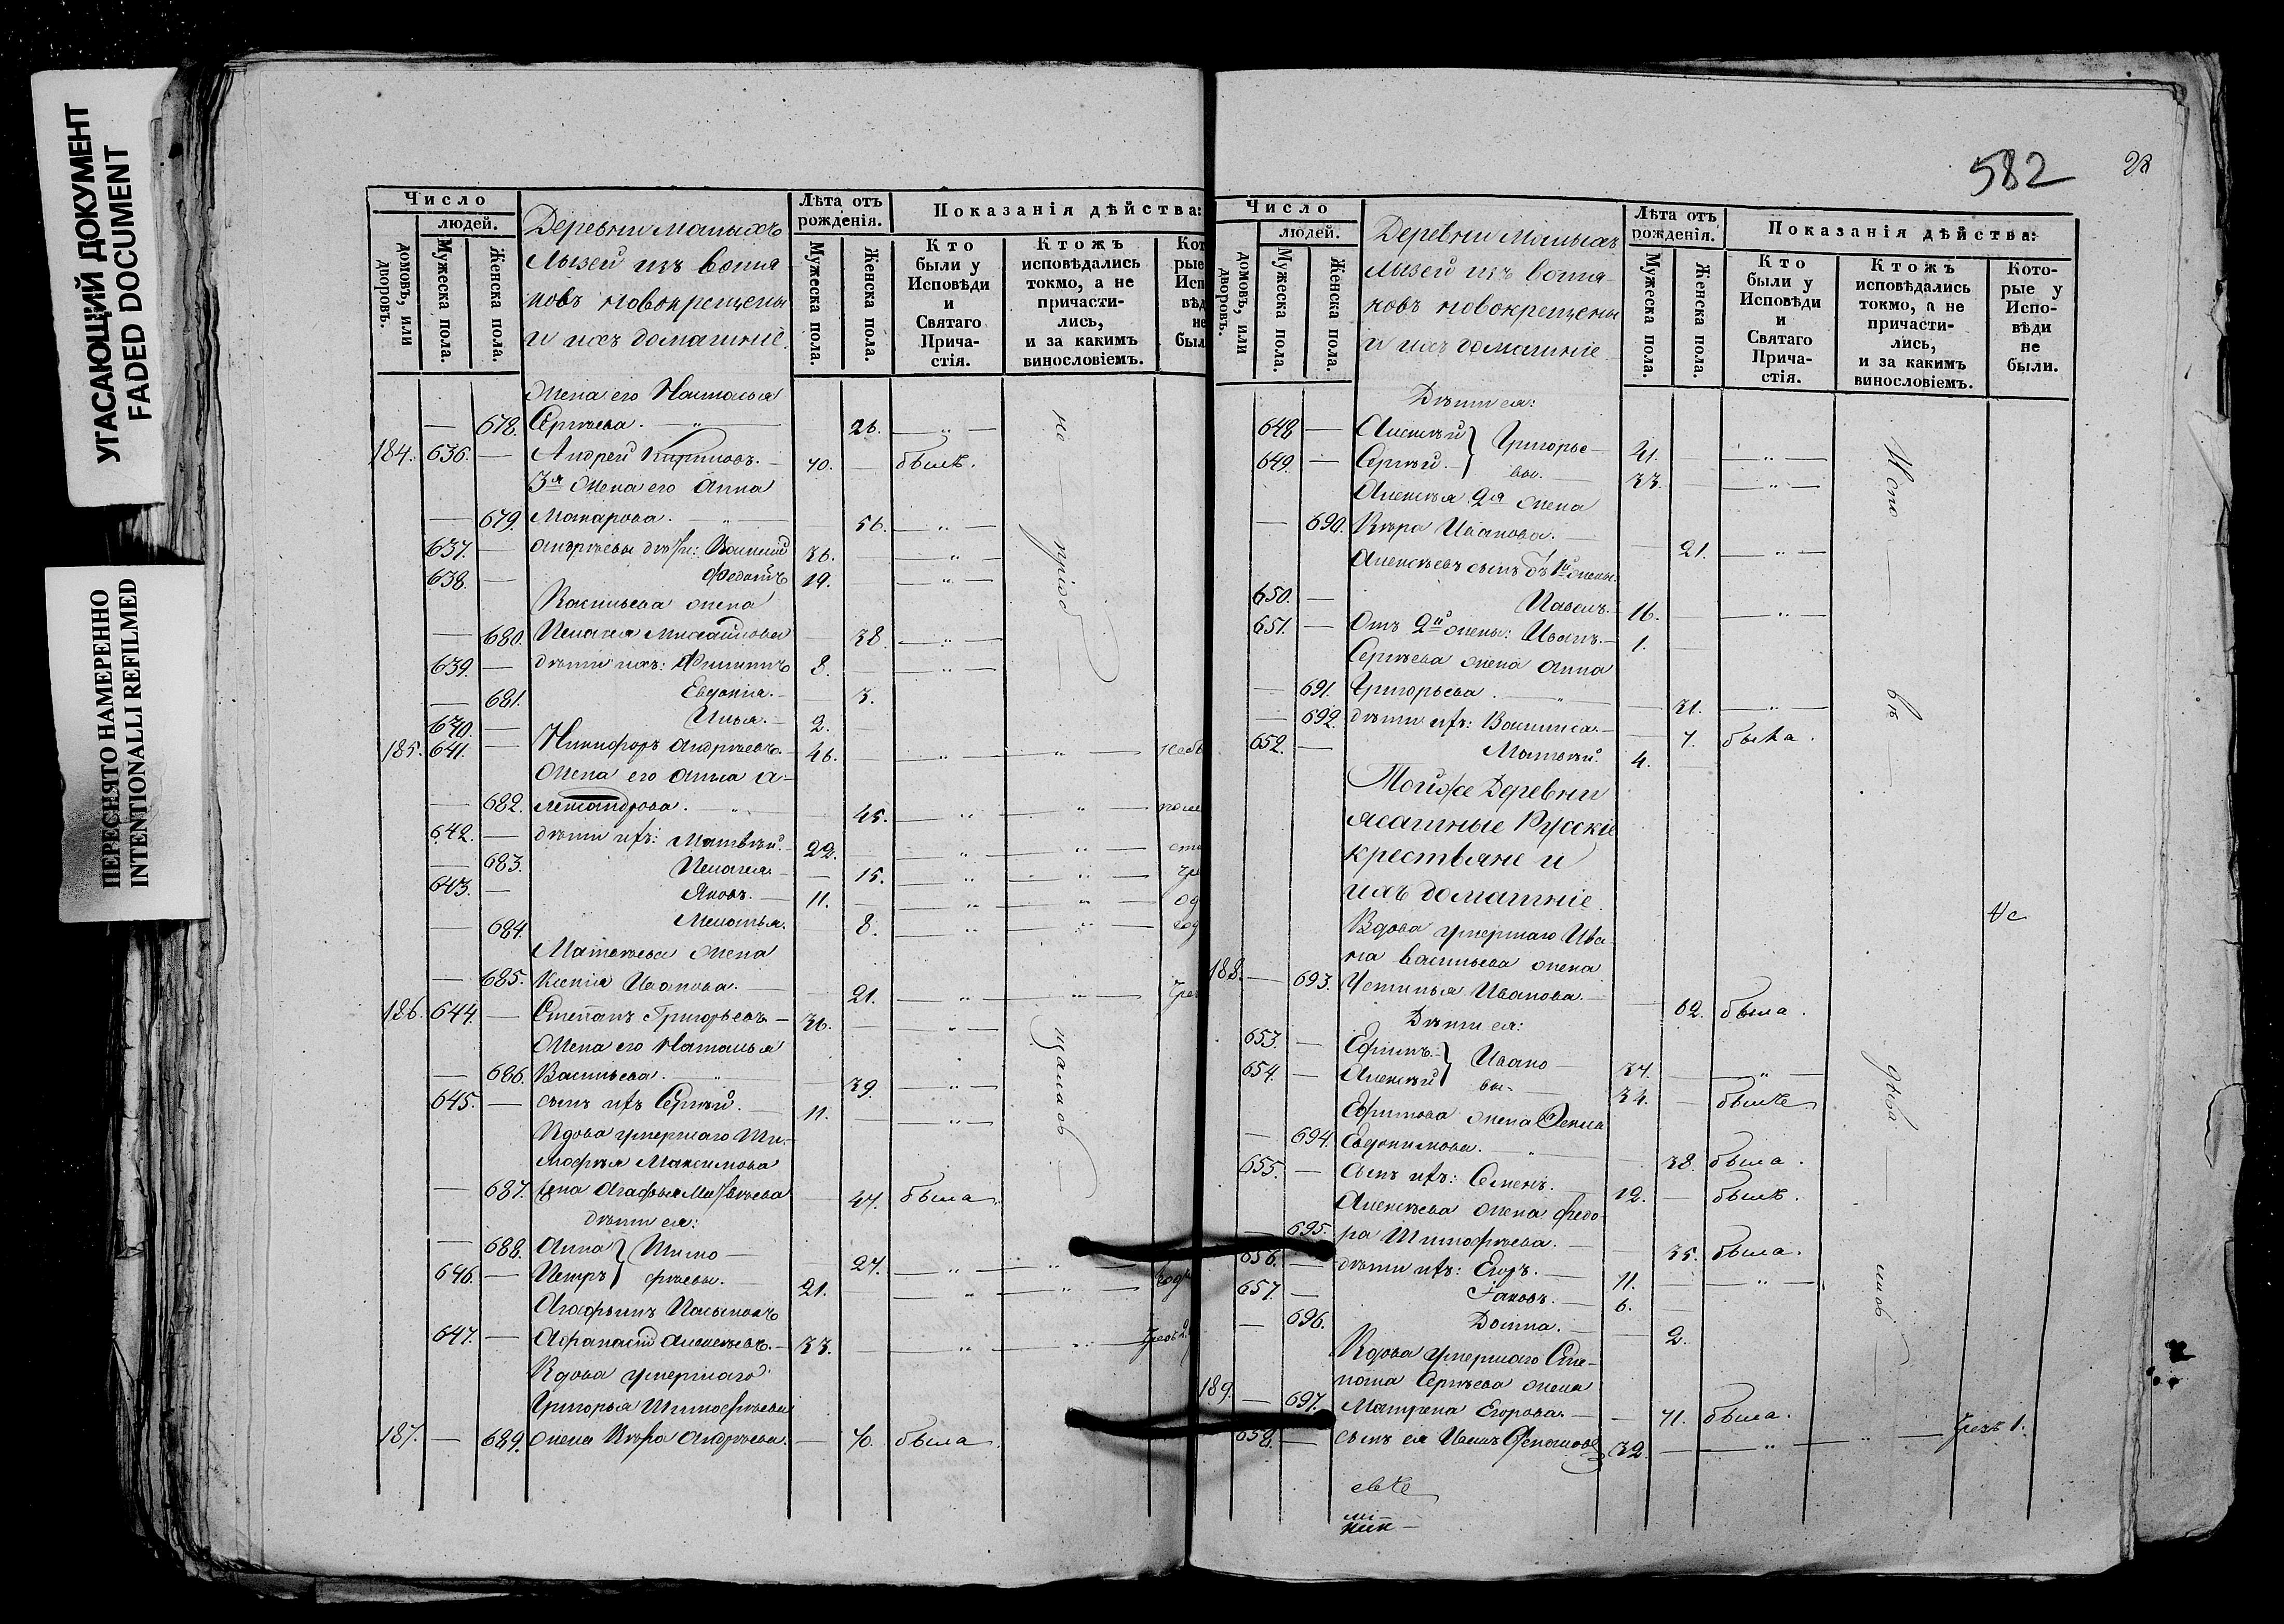 УГАСАЮЩИЙ ДОКУМЕНТ
FADED DOCUMENT
ПЕРЕСНЯТО НАМЕРЕННО
INTENTIONALLI REFILMED
Число
людей.
домовъ, или дворовъ.
Мужеска пола.
Женска пола.
Деревни Малыхъ
Лызей изъ вотя-
ковъ новокрещены
и ихъ домашніе.
Лѣта отъ рожденія.
Мужеска пола.
Женска пола.
Показанія дѣйства:
Кто были у Исповѣди и Святаго Прича-стія.
Ктожъ исповѣдались токмо, а не причасти-лись, и за какимъ винословіемъ.
Жена его Наталья
678. Сергѣева. 26.
184. 636. Андрей 70. былъ.
3я Жена его Анна
679. Макарова. 56.
637. Андреевы дѣти: Василій 36.
638. Федотъ 19.
Васильева жена
680. Пелагея 38.
639. дѣти ихъ: Филиппъ 8.
681. Евдокія. 3.
640. Илья. 2.
185. 641. Никифоръ Андреевъ. 46.
Жена его Анна А-
682. лександрова. 45.
642. дѣти ихъ: Матвѣй. 22.
683. Пелагея. 15.
643. Яковъ. 11.
684. 8.
Матвѣева жена
685. Ксенія Иванова. 21.
186. 644. Степанъ Григорьевъ 36.
Жена его Наталья
686. Васильева. 39.
645. сынъ ихъ Сергѣй. 11.
Вдова умершаго Ти-
мофѣя Максимова
687. жена Агафья Матвѣева 47. была.
дѣти ея:
688. Анна } Тимо- 27.
646. Петръ } фѣевы. 21.
Агафьинъ Пасынокъ
647. Афанасій Алексѣевъ. 33.
Вдова умершаго
Григорья Тимофѣева
187. 689. жена Вѣра Андреева. 70. была.
582
28
Число
людей.
домовъ, или дворовъ.
Мужеска пола.
Женска пола.
Деревни Малыхъ
Лызей изъ вотя-
ковъ новокрещены
и ихъ домашніе
Лѣта отъ рожденія.
Мужеска пола.
Женска пола.
Показанія дѣйства:
Кто были у Исповѣди и Святаго Прича-стія.
Ктожъ исповѣдались токмо, а не причасти-лись, и за какимъ винословіемъ.
Кото-рые у Испо-вѣди не были.
Дѣти ея:
648 Алексѣй } Григорье- 41.
649. Сергѣй. } вы. 33.
Алексѣя 2я жена
690. Вѣра Иванова. 21.
Алексѣевъ сынъ отъ 1й жены
650. Павелъ. 16.
651. Отъ 2й жены: Иванъ. 1.
Сергѣева жена Анна
691. Григорьева. 31.
692. дѣти ихъ: Василиса 7. была.
652. Матвѣй. 4.
Той же Деревни
ясашные Русскіе
крестьяне и
ихъ домашніе.
Вдова умершаго Ива-
на Васильева жена
188. 693. Устинья Иванова. 62. была.
Дѣти ея:
653. Ефимъ. } Ивано- 37.
654. Алексѣй } вы. 34. былъ
Ефимова жена Фекла
694. Евдокимова. 38. была.
655. сынъ ихъ: Семенъ. 12. былъ.
Алексѣева жена Федо-
695. ра Тимофѣева. 35. была.
656. дѣти ихъ: Егоръ. 11.
657. Іаковъ. 6.
696. Домна. 2.
Вдова умершаго Сте-
пана Сергѣева жена
189. 697. Матрена Егорова. 71. была.
658. сынъ ея 32. Чрезъ 1.